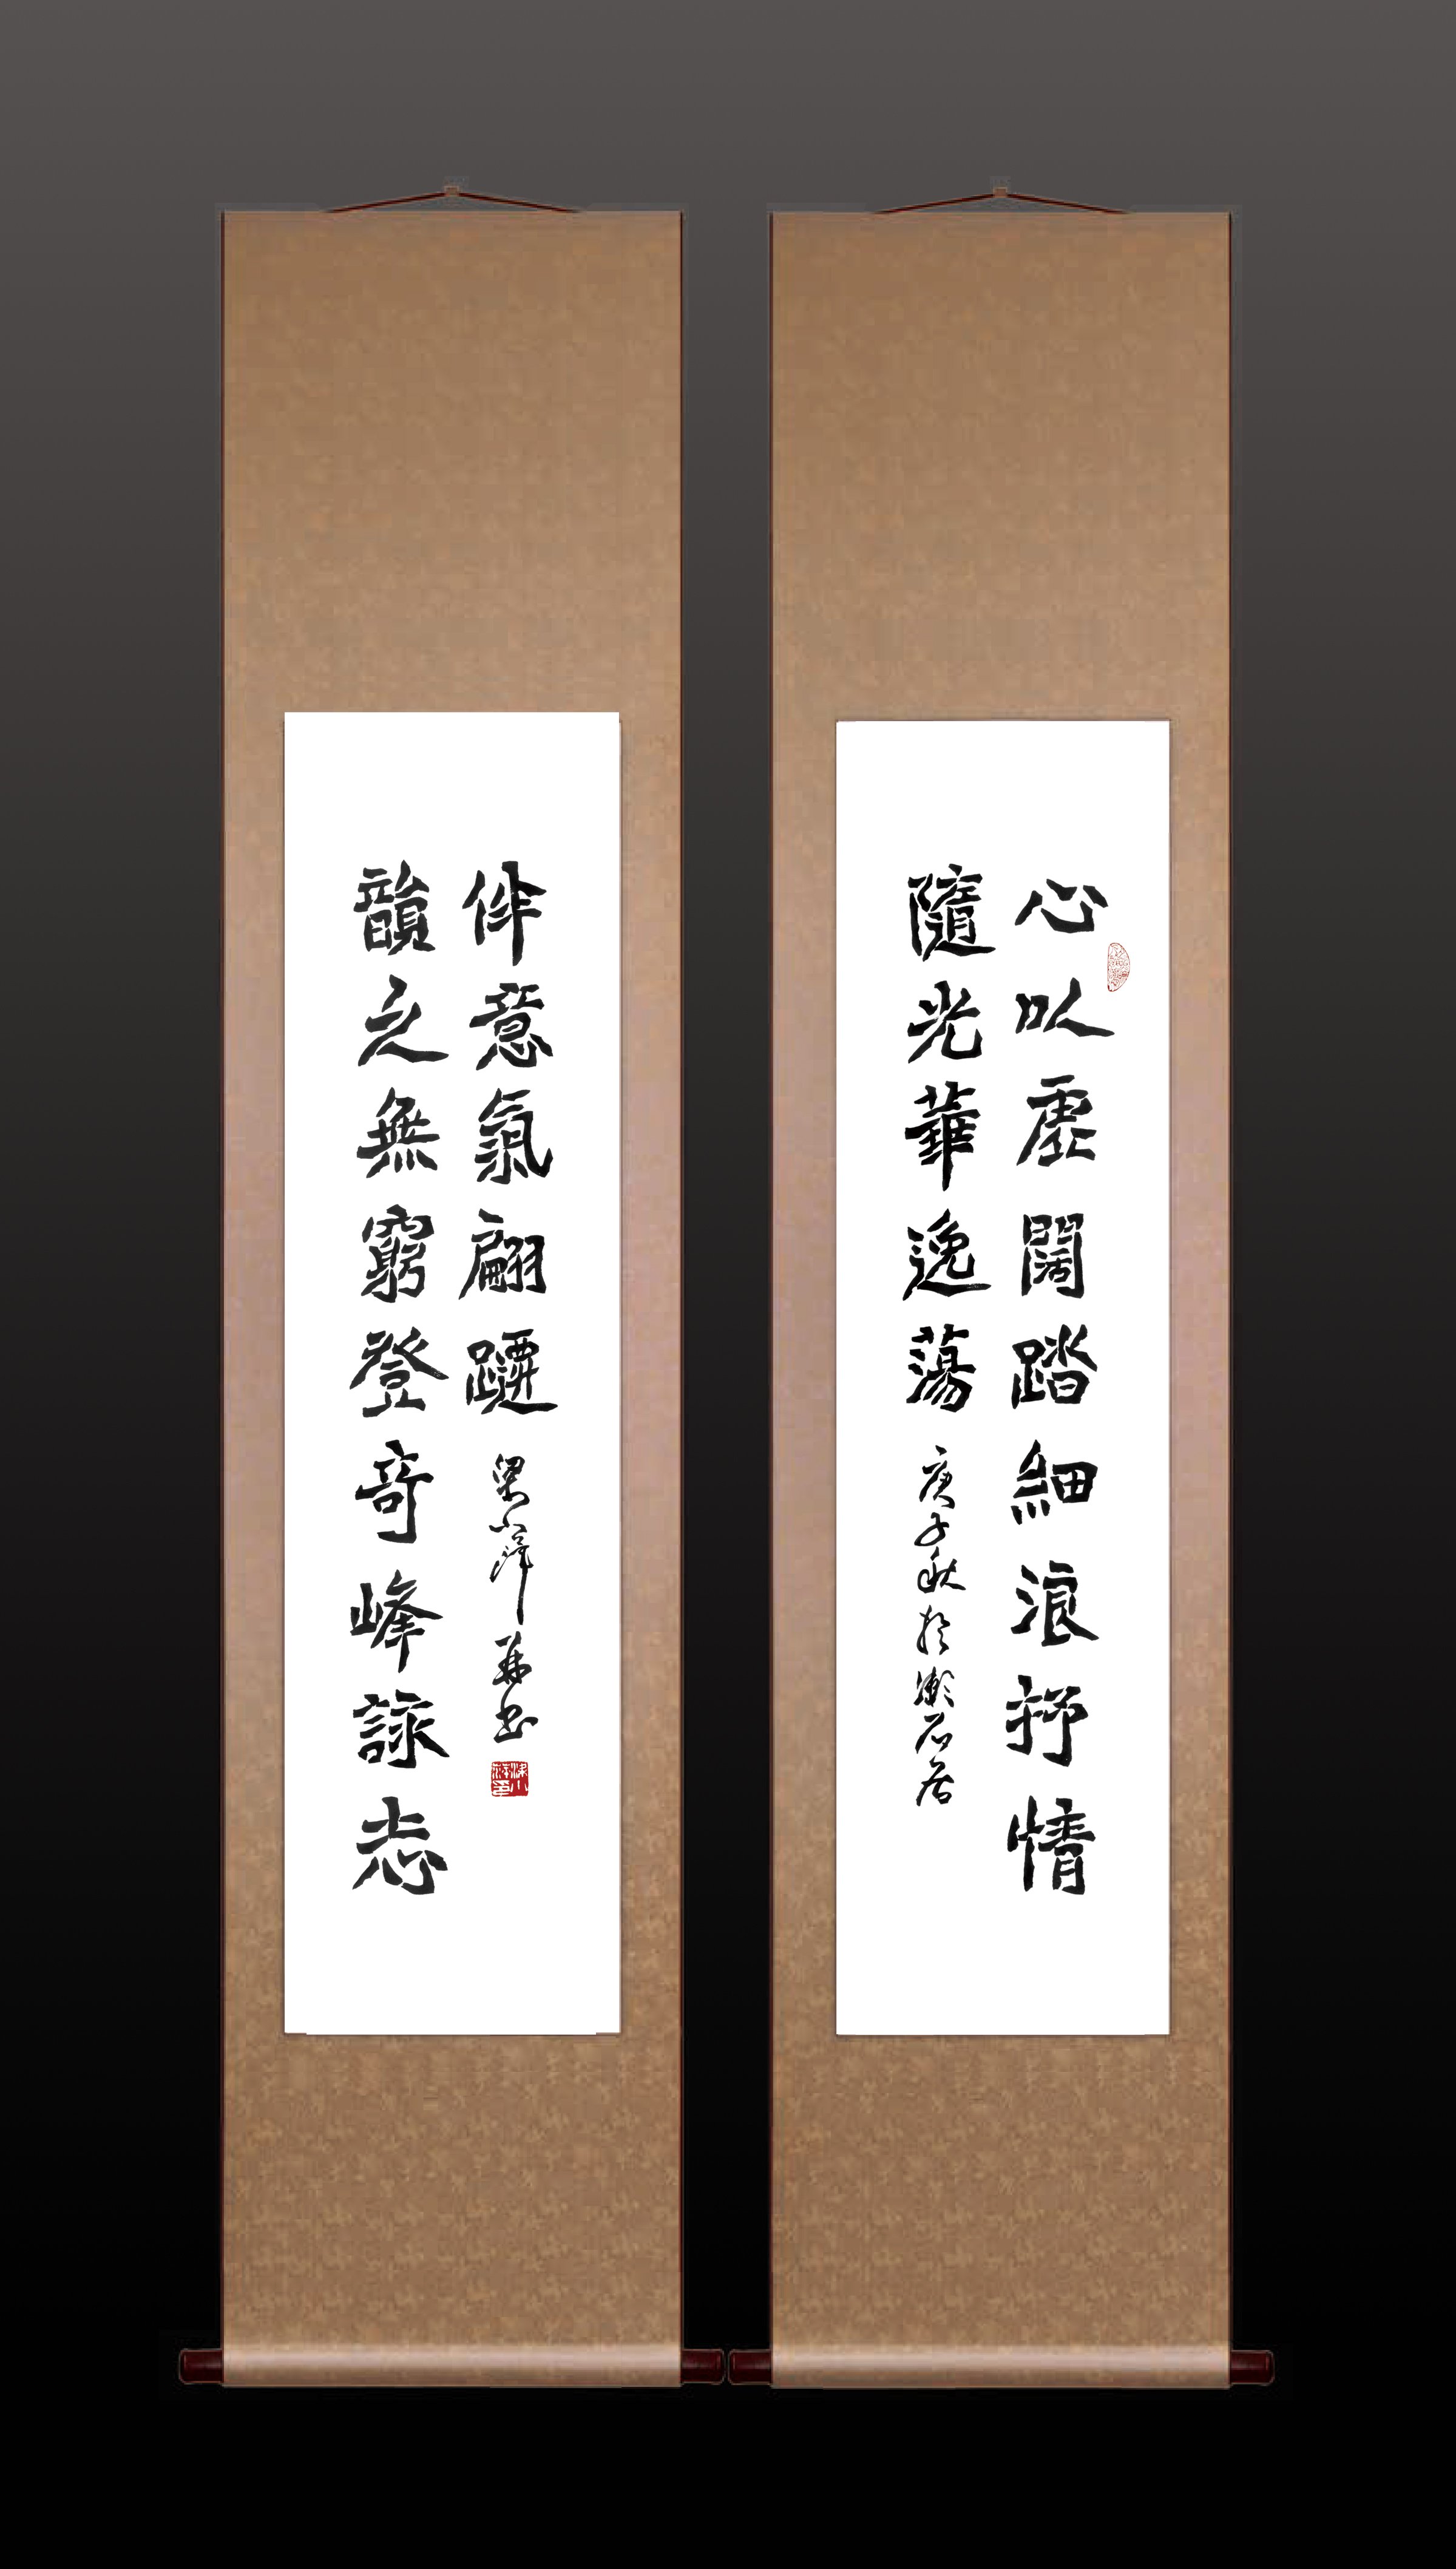 心以虛闊踏細浪抒情
隨光華逸蕩
庚子秋於漱石居
韻之無窮登奇峰詠志
伴意氣翩躚
梁小萍并書